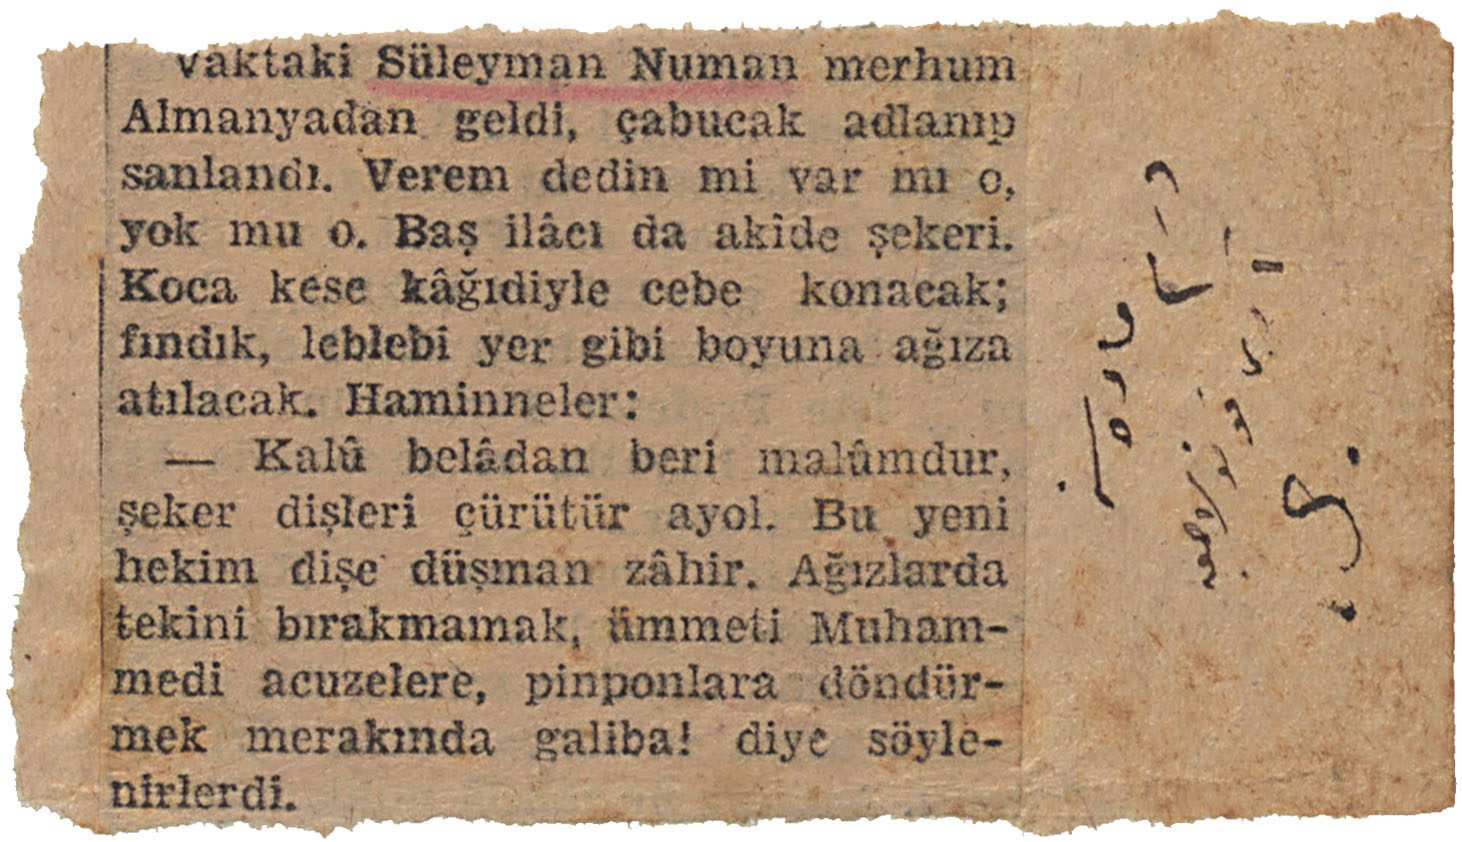 Vaktaki Süleyman Numan merhum
Almanyadan geldi, çabucak adlanıp
sanlandı. Verem dedin mi var mı o,
yok mu o. Baş ilâcı da akide şekeri.
Koca kese kâğıdiyle cebe konacak;
fındık, leblebi yer gibi boyuna ağıza
atılacak. Haminneler:
— Kalû belâdan beri malûmdur,
şeker dişleri çürütür ayol. Bu yeni
hekim dişe düşman zâhir. Ağızlarda
tekini bırakmamak, ümmeti Muham-
medi acuzelere, pinponlara döndür-
mek merakında galiba! diye söyle-
nirlerdi.